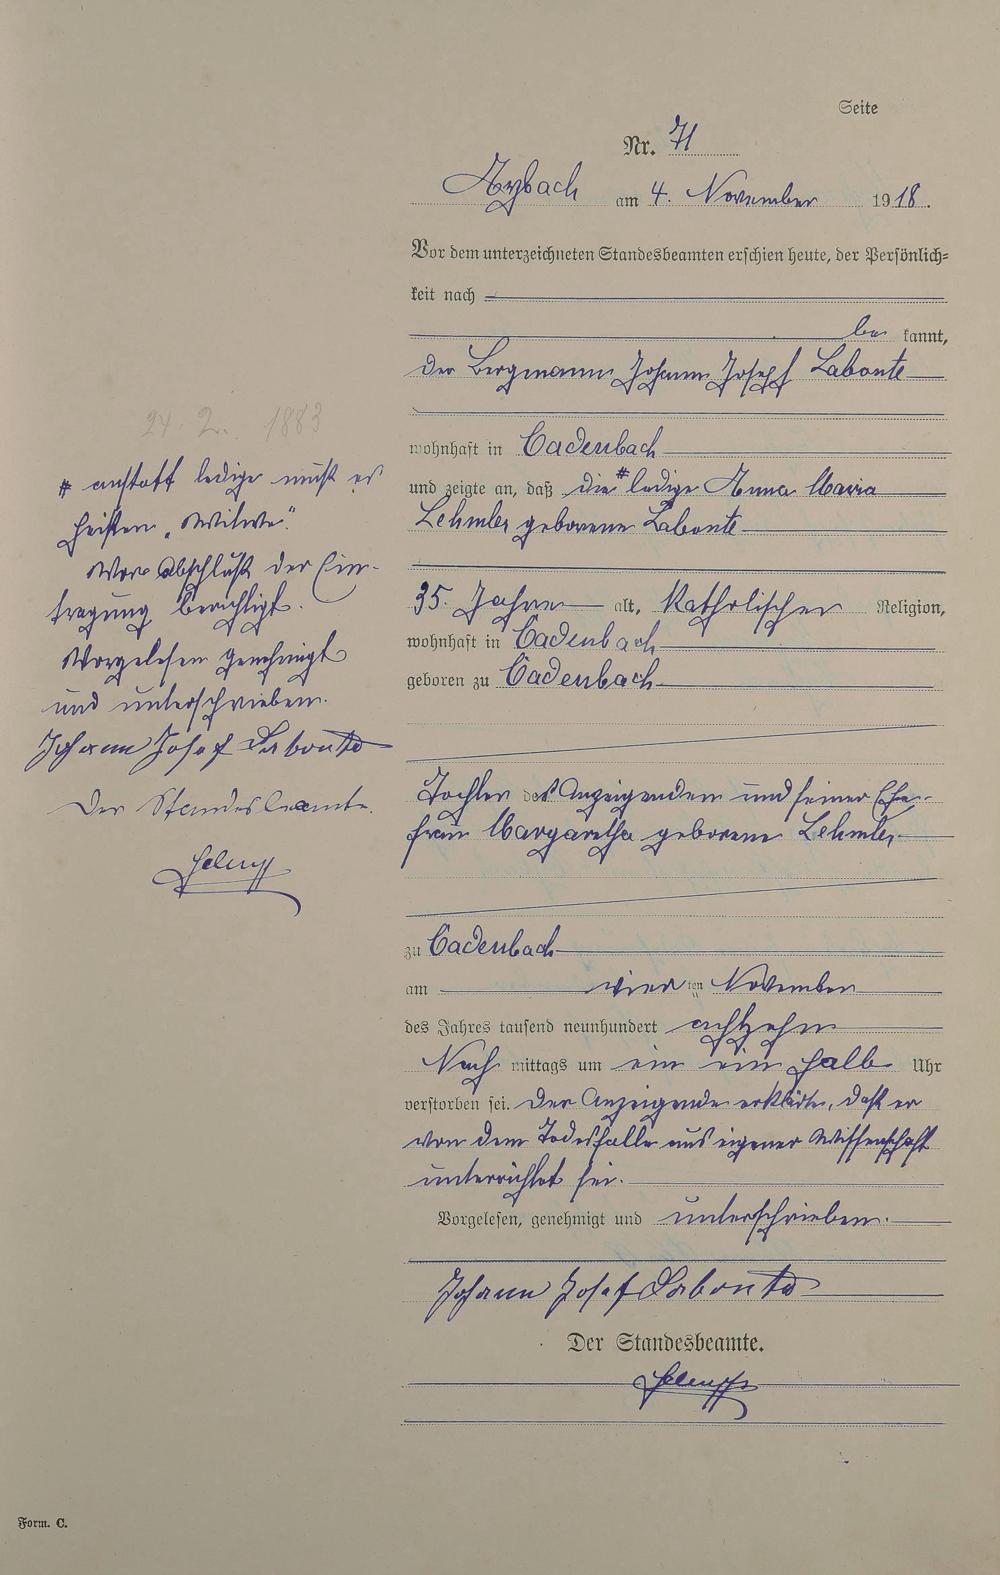 Seite
Nr. 71
Arzbach am 4. November 1918.
Vor dem unterzeichneten Standesbeamten erschien heute, der Persönlich-
keit nach
be kannt,
der Bergmann Johann Joseph Labonte
wohnhaft in Cadenbach
und zeigte an, daß die # ledige Anna Maria
Lehmler geborene Labonte
35 Jahre alt, katholischer Religion,
wohnhaft in Cadenbach
geboren zu Cadenbach
Tochter des Anzeigenden und seiner Ehe-
frau Margaretha geborene Lehmler
zu Cadenbach
am vier ten November
des Jahres tausend neunhundert achtzehn
Nach mittags um ein ein halb Uhr
verstorben sei. Der Anzeigende erklärte, daß er
von dem Todesfalle aus eigener Wissenschaft
unterrichtet sei.
Vorgelesen, genehmigt und unterschrieben.
Johann Josef Labonte
Der Standesbeamte.
24. 2. 1883
# anstatt ledige muß es
heißen „Witwe".
Vor Abschluß der Ein-
tragung berichtigt.
Vorgelesen genehmigt
und unterschrieben.
Johann Josef Labonte
Der Standesbeamte.
Form. C.